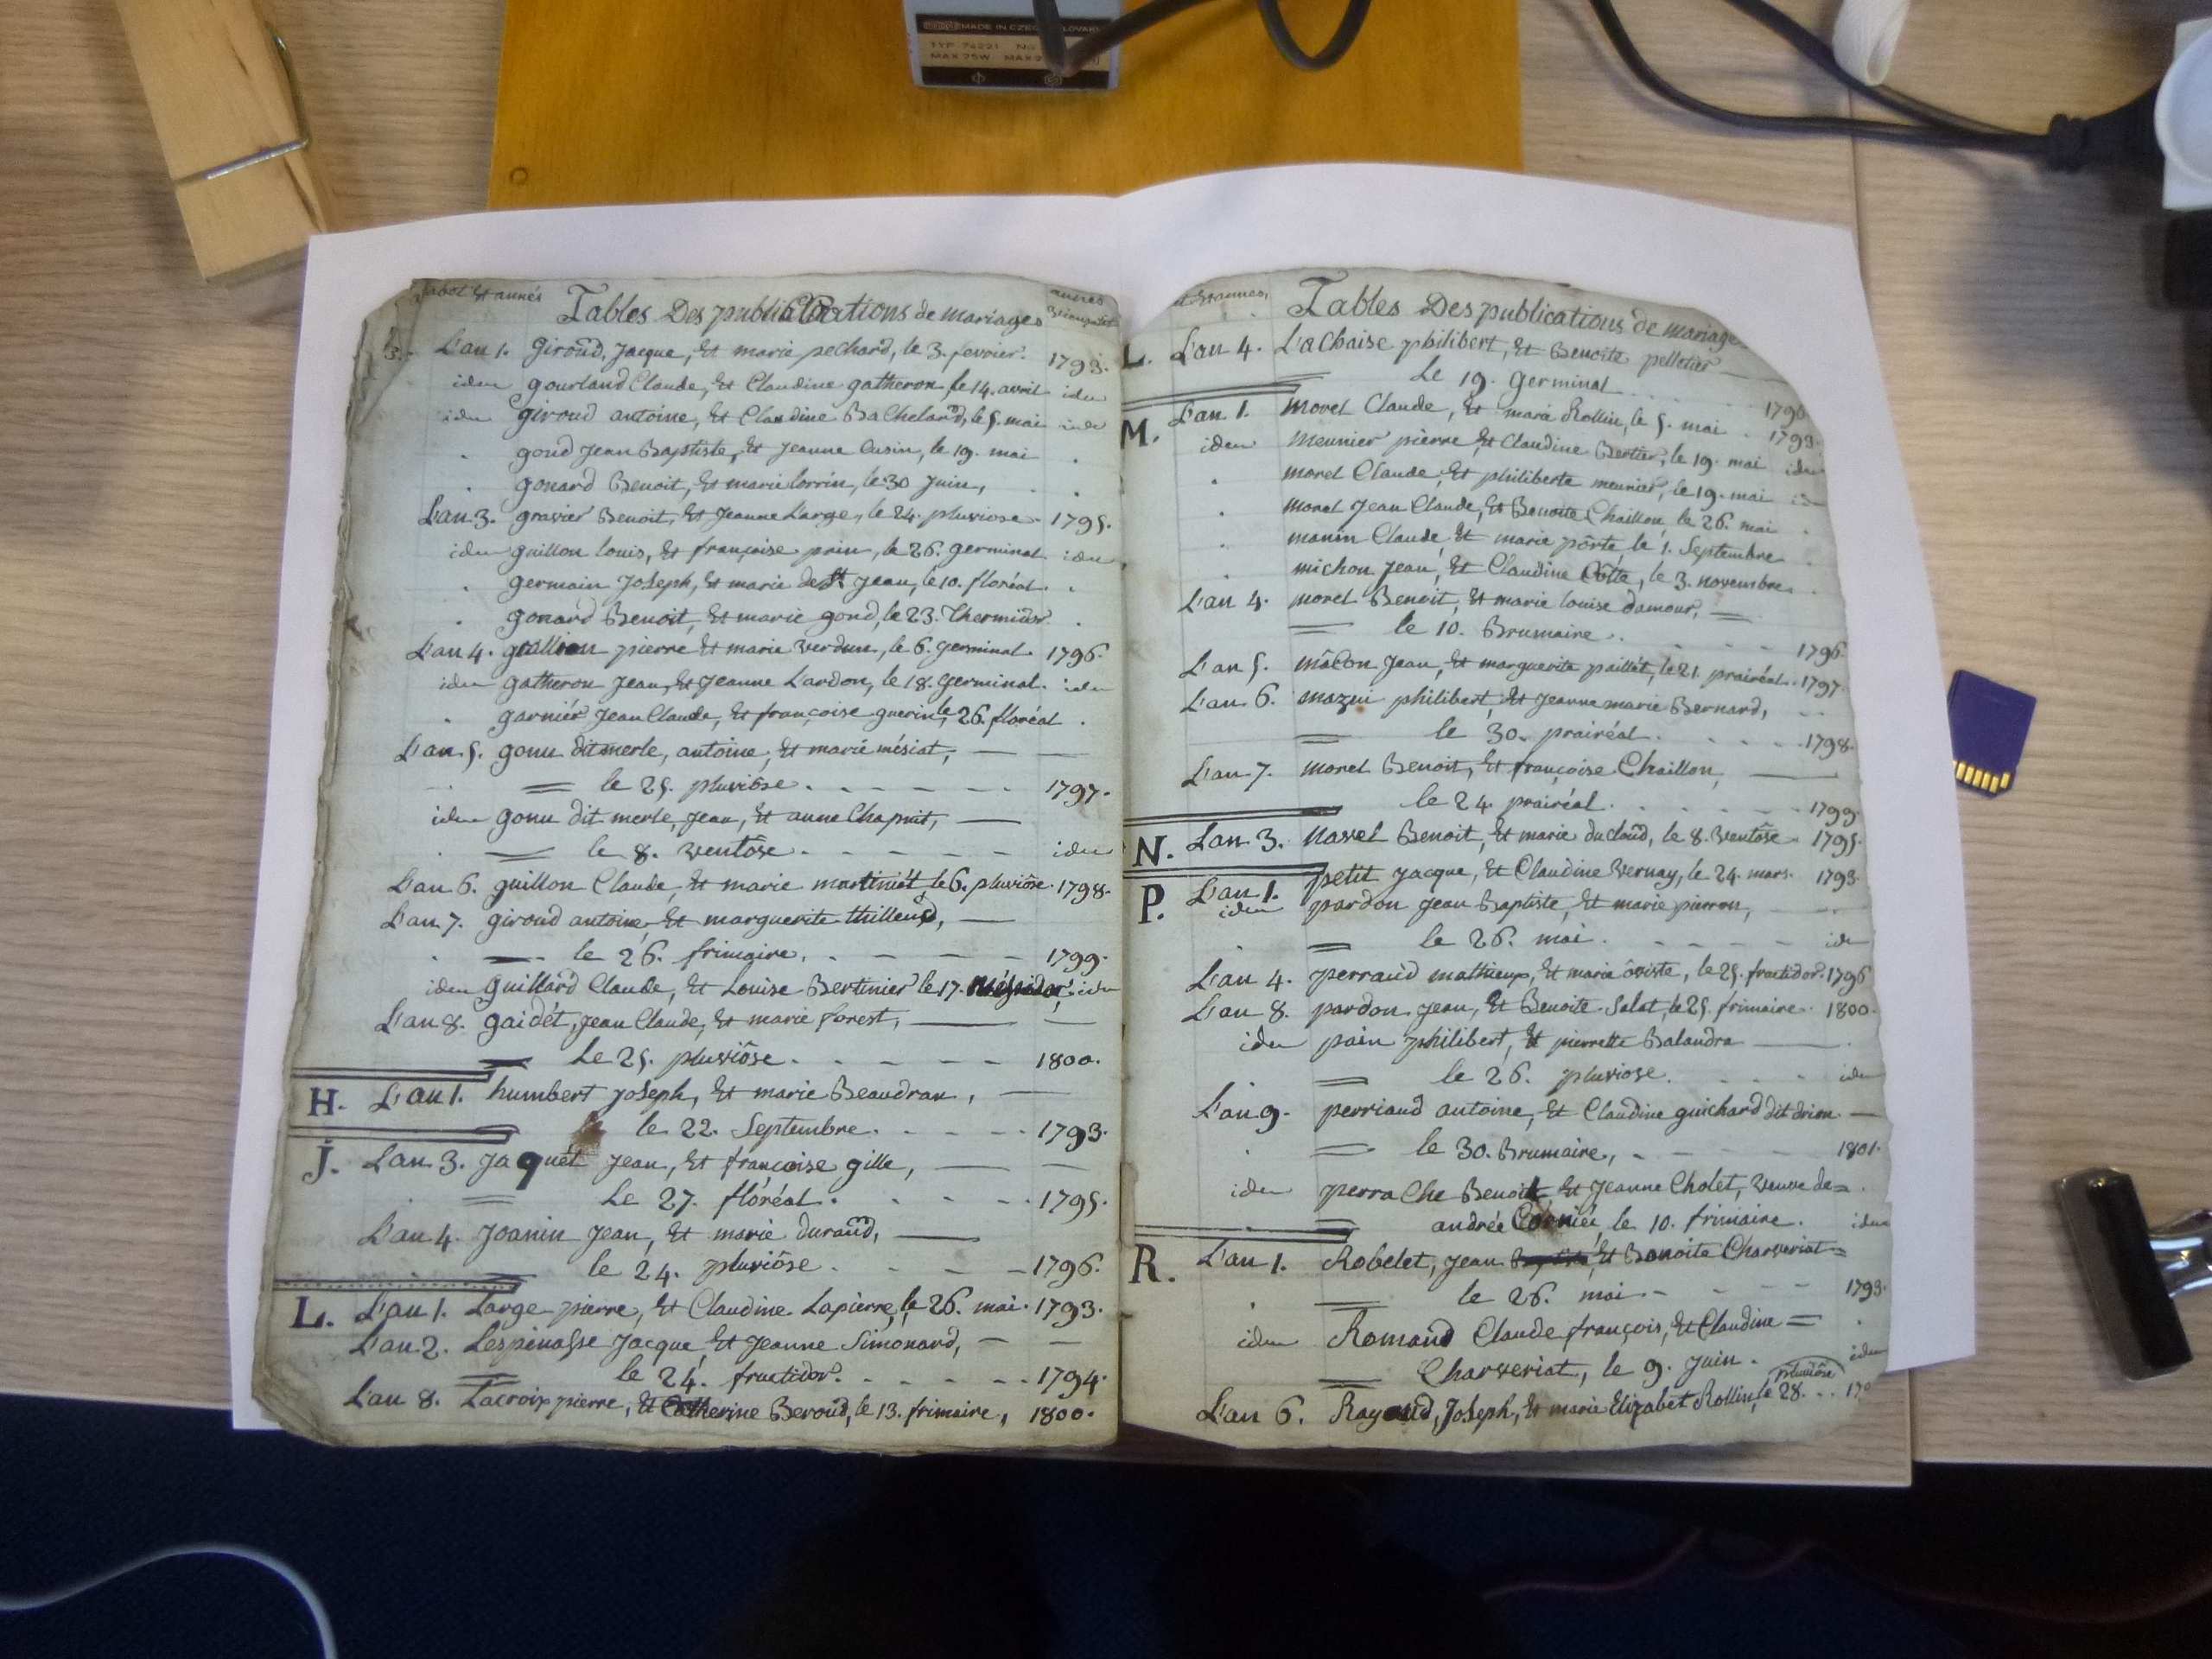 MADE IN CZECHOSLOVAKIA
TYP 74221 No
MAX 75W MAX 2
et année
Tables Des publications de mariages
années
L'an 1. giroud, Jacque, Et marie pechard, le 3. fevrier. 1793.
idem gourland Claude, Et Claudine gatheron le 14. avril idem
idem giroud antoine, Et Claudine Bachelard, le 5. mai idem
goud Jean Baptiste, Et Jeanne Cusin, le 19. mai
gonard Benoit, Et marie lorrin, le 30 Juin,
L'an 3. gravier Benoit, Et Jeanne Large, le 24. pluviose. 1795.
idem guillon louis, Et françoise prin, le 26. germinal. idem
germain Joseph, Et marie de St Jean, le 10. floréal.
gonard Benoit, Et marie gond, le 23. Thermidor.
L'an 4. pierre Et marie verdun, le 6. germinal. 1796.
idem gatheron Jean, Et Jeanne Lardon, le 18. germinal. idem
garnier Jean Claude, Et françoise guerin, le 26. floréal.
L'an 5. gonu dit merle, antoine, Et marie mésiat, —
= le 25. pluviôse. 1797.
idem gonu dit merle, Jean, Et anne Chapuit, —
= le 8. ventôse. idem
L'an 6. guillon Claude, Et marie martiniét, le 6. pluviôse. 1798.
L'an 7. giroud antoine, Et marguerite —
le 26. frimaire. 1799.
idem guillard Claude, Et Louise Bertinier le 17. idem
L'an 8. gaidét, Jean Claude, Et marie forest, —
Le 25. pluviôse. 1800.
H. L'an 1. humbert Joseph, Et marie Beaudran, —
le 22. Septembre. 1793.
J. L'an 3. Jaquét Jean, Et françoise gille, —
= Le 27. floréal. 1795.
L'an 4. Joanin Jean, Et marie durand, —
le 24. pluviôse. 1796.
L. L'an 1. Large pierre, Et Claudine Lapierre, le 26. mai. 1793.
L'an 2. Lespinasse Jacque, Et Jeanne Simonard, —
= le 24. fructidor. 1794.
L'an 8. Lacroix pierre, Et Catherine Beroud, le 13. frimaire, 1800.
Tables Des publications de mariage
L. L'an 4. Lachaise philibert, Et Benoite pelletier
Le 19. germinal 1796
M. L'an 1. morel Claude, Et marie Rollin, le 5. mai. 1793.
idem meunier pierre, Et Claudine Bertier, le 19. mai idem
morel Claude, Et philiberte meunier, le 19. mai
morel Jean Claude, Et Benoite Chaillon, le 26. mai
manin Claude Et marie pôrte, le 1. Septembre
michon Jean, Et Claudine Côtte, le 3. novembre.
L'an 4. morel Benoit, Et marie louise damour, =
= le 10. Brumaire. 1796.
L'an 5. mâcon Jean, Et marguerite paillét, le 21. prairéal. 1797.
L'an 6. mazui philibert, Et Jeanne marie Bernard,
= le 30. prairéal. 1798.
L'an 7. morel Benoit, Et françoise Chaillon, —
le 24. prairéal. 1799
N. L'an 3. navel Benoit, Et marie ducloud, le 8. ventôse. 1795.
P. L'an 1. petit Jacque, Et Claudine vernay, le 24. mars. 1793.
idem pardon Jean Baptiste, Et marie pierron, —
= le 26. mai. idem
L'an 4. perraud mathieux, Et marie, le 25. fructidor. 1796
L'an 8. pardon Jean, Et Benoite Salat, le 25. frimaire. 1800.
idem pain philibert, Et pierrette Balandra —
= le 26. pluviose. idem
L'an 9. perriaud antoine, Et Claudine guichard dit drion —
= le 30. Brumaire, 1801.
idem perrache Benoit, Et Jeanne Cholet, veuve de =
= andrée le 10. frimaire. idem
R. L'an 1. Robelet, Jean Et Benoite Charveriat =
le 26. mai. 1793.
idem Romand Claude françois, Et Claudine =
Charveriat, le 9. Juin. idem
pluviôse
L'an 6. Rayaud, Joseph, Et marie Elizabet Rollin, le 28.